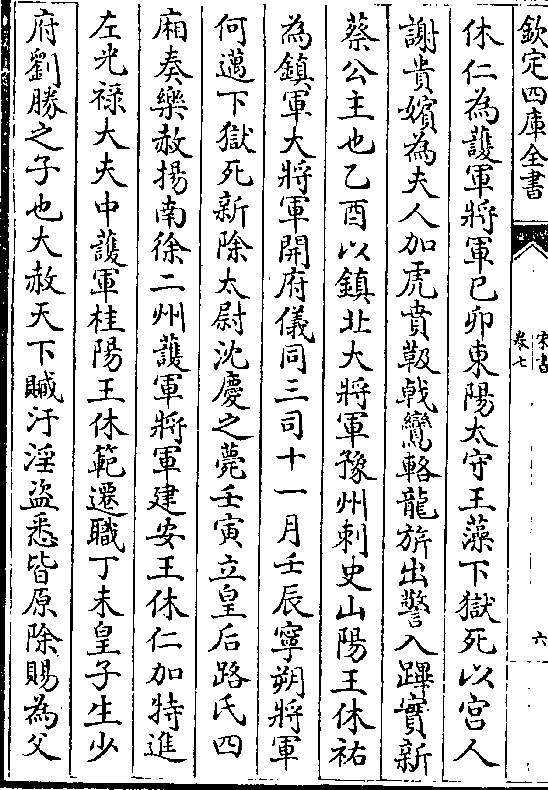 欽定四庫全書
宋書
卷七
六
休仁為護軍將軍己卯東陽太守王藻下獄死以宮人
謝貴嬪為夫人加虎賁靸戟鸞輅龍旂出警入蹕實新
蔡公主也乙酉以鎮北大將軍豫州刺史山陽王休祐
為鎮軍大將軍開府儀同三司十一月壬辰寧朔將軍
何邁下獄死新除太尉沈慶之薨壬寅立皇后路氏四
廂奏樂赦揚南徐二州護軍將軍建安王休仁加特進
左光祿大夫中護軍桂陽王休範遷職丁未皇子生少
府劉勝之子也大赦天下贓汙淫盜悉皆原除賜為父